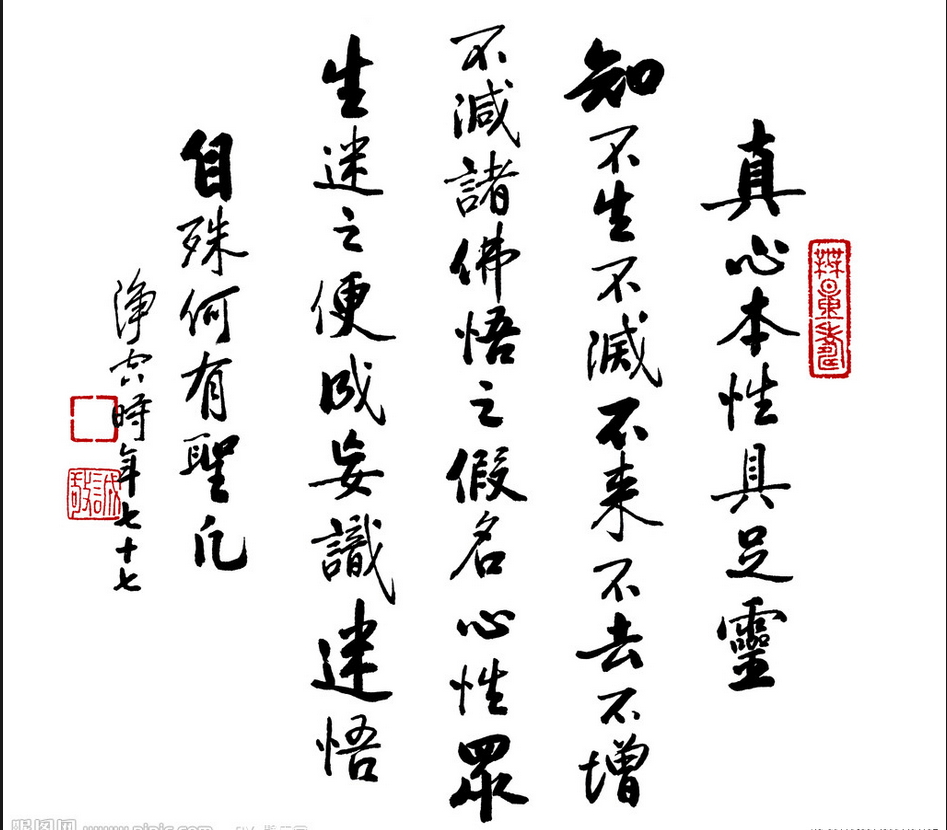 真心本性具足靈
知不生不滅不来不去不增
不減諸佛悟之假名心性眾
生迷之便成妄識迷悟
自殊何有聖凡
淨空時年七十七
無量壽
誠敬
昵图网 www.nipic.com